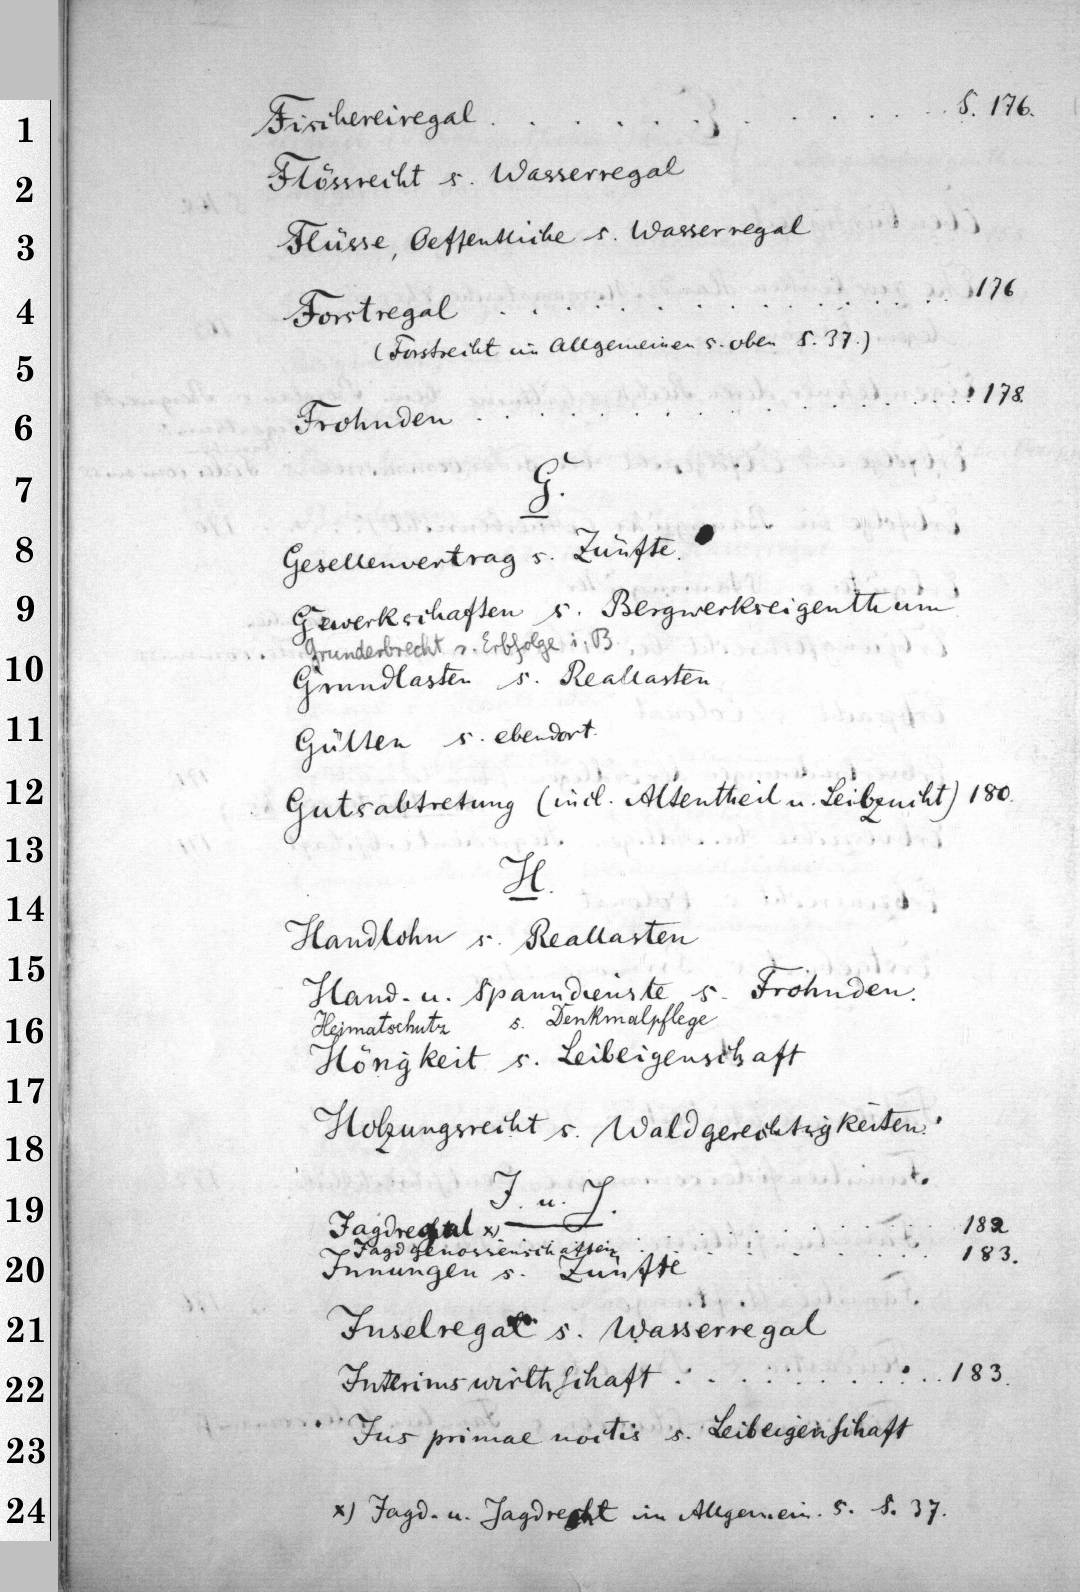 1 Fischereiregal . . . . . . . . . . . . . S. 176.
2 Flössrecht s. Wasserregal
3 Flüsse, Oeffentliche s. Wasserregal
4 Forstregal . . . . . . . . . . . . . 176
5 (Forstrecht im Allgemeinen s. oben S. 37.)
6 Frohnden . . . . . . . . . . . . . 178.
7 G.
8 Gesellenvertrag s. Zünfte.
9 Gewerkschaften s. Bergwerkseigenthum
Grunderbrecht s. Erbfolge i. B.
10 Grundlasten s. Reallasten
11 Gülten s. ebendort.
12 Gutsabtretung (incl. Altentheil u. Leibzucht) 180.
13 H.
14 Handlohn s. Reallasten
15 Hand- u. Spanndienste s. Frohnden.
16 Heimatschutz s. Denkmalpflege
Hörigkeit s. Leibeigenschaft
17
18 Holzungsrecht s. Waldgerechtigkeiten.
19 I. u. J.
Jagdregal x) . . . . . . . . . 182
Jagdgenossenschaften . . . . . . . . . 183.
20 Innungen s. Zünfte
21 Inselregal s. Wasserregal
22 Interimswirthschaft . . . . . . . . . 183.
23 Jus primae noctis s. Leibeigenschaft
24 x) Jagd- u. Jagdrecht im Allgemein. s. S. 37.